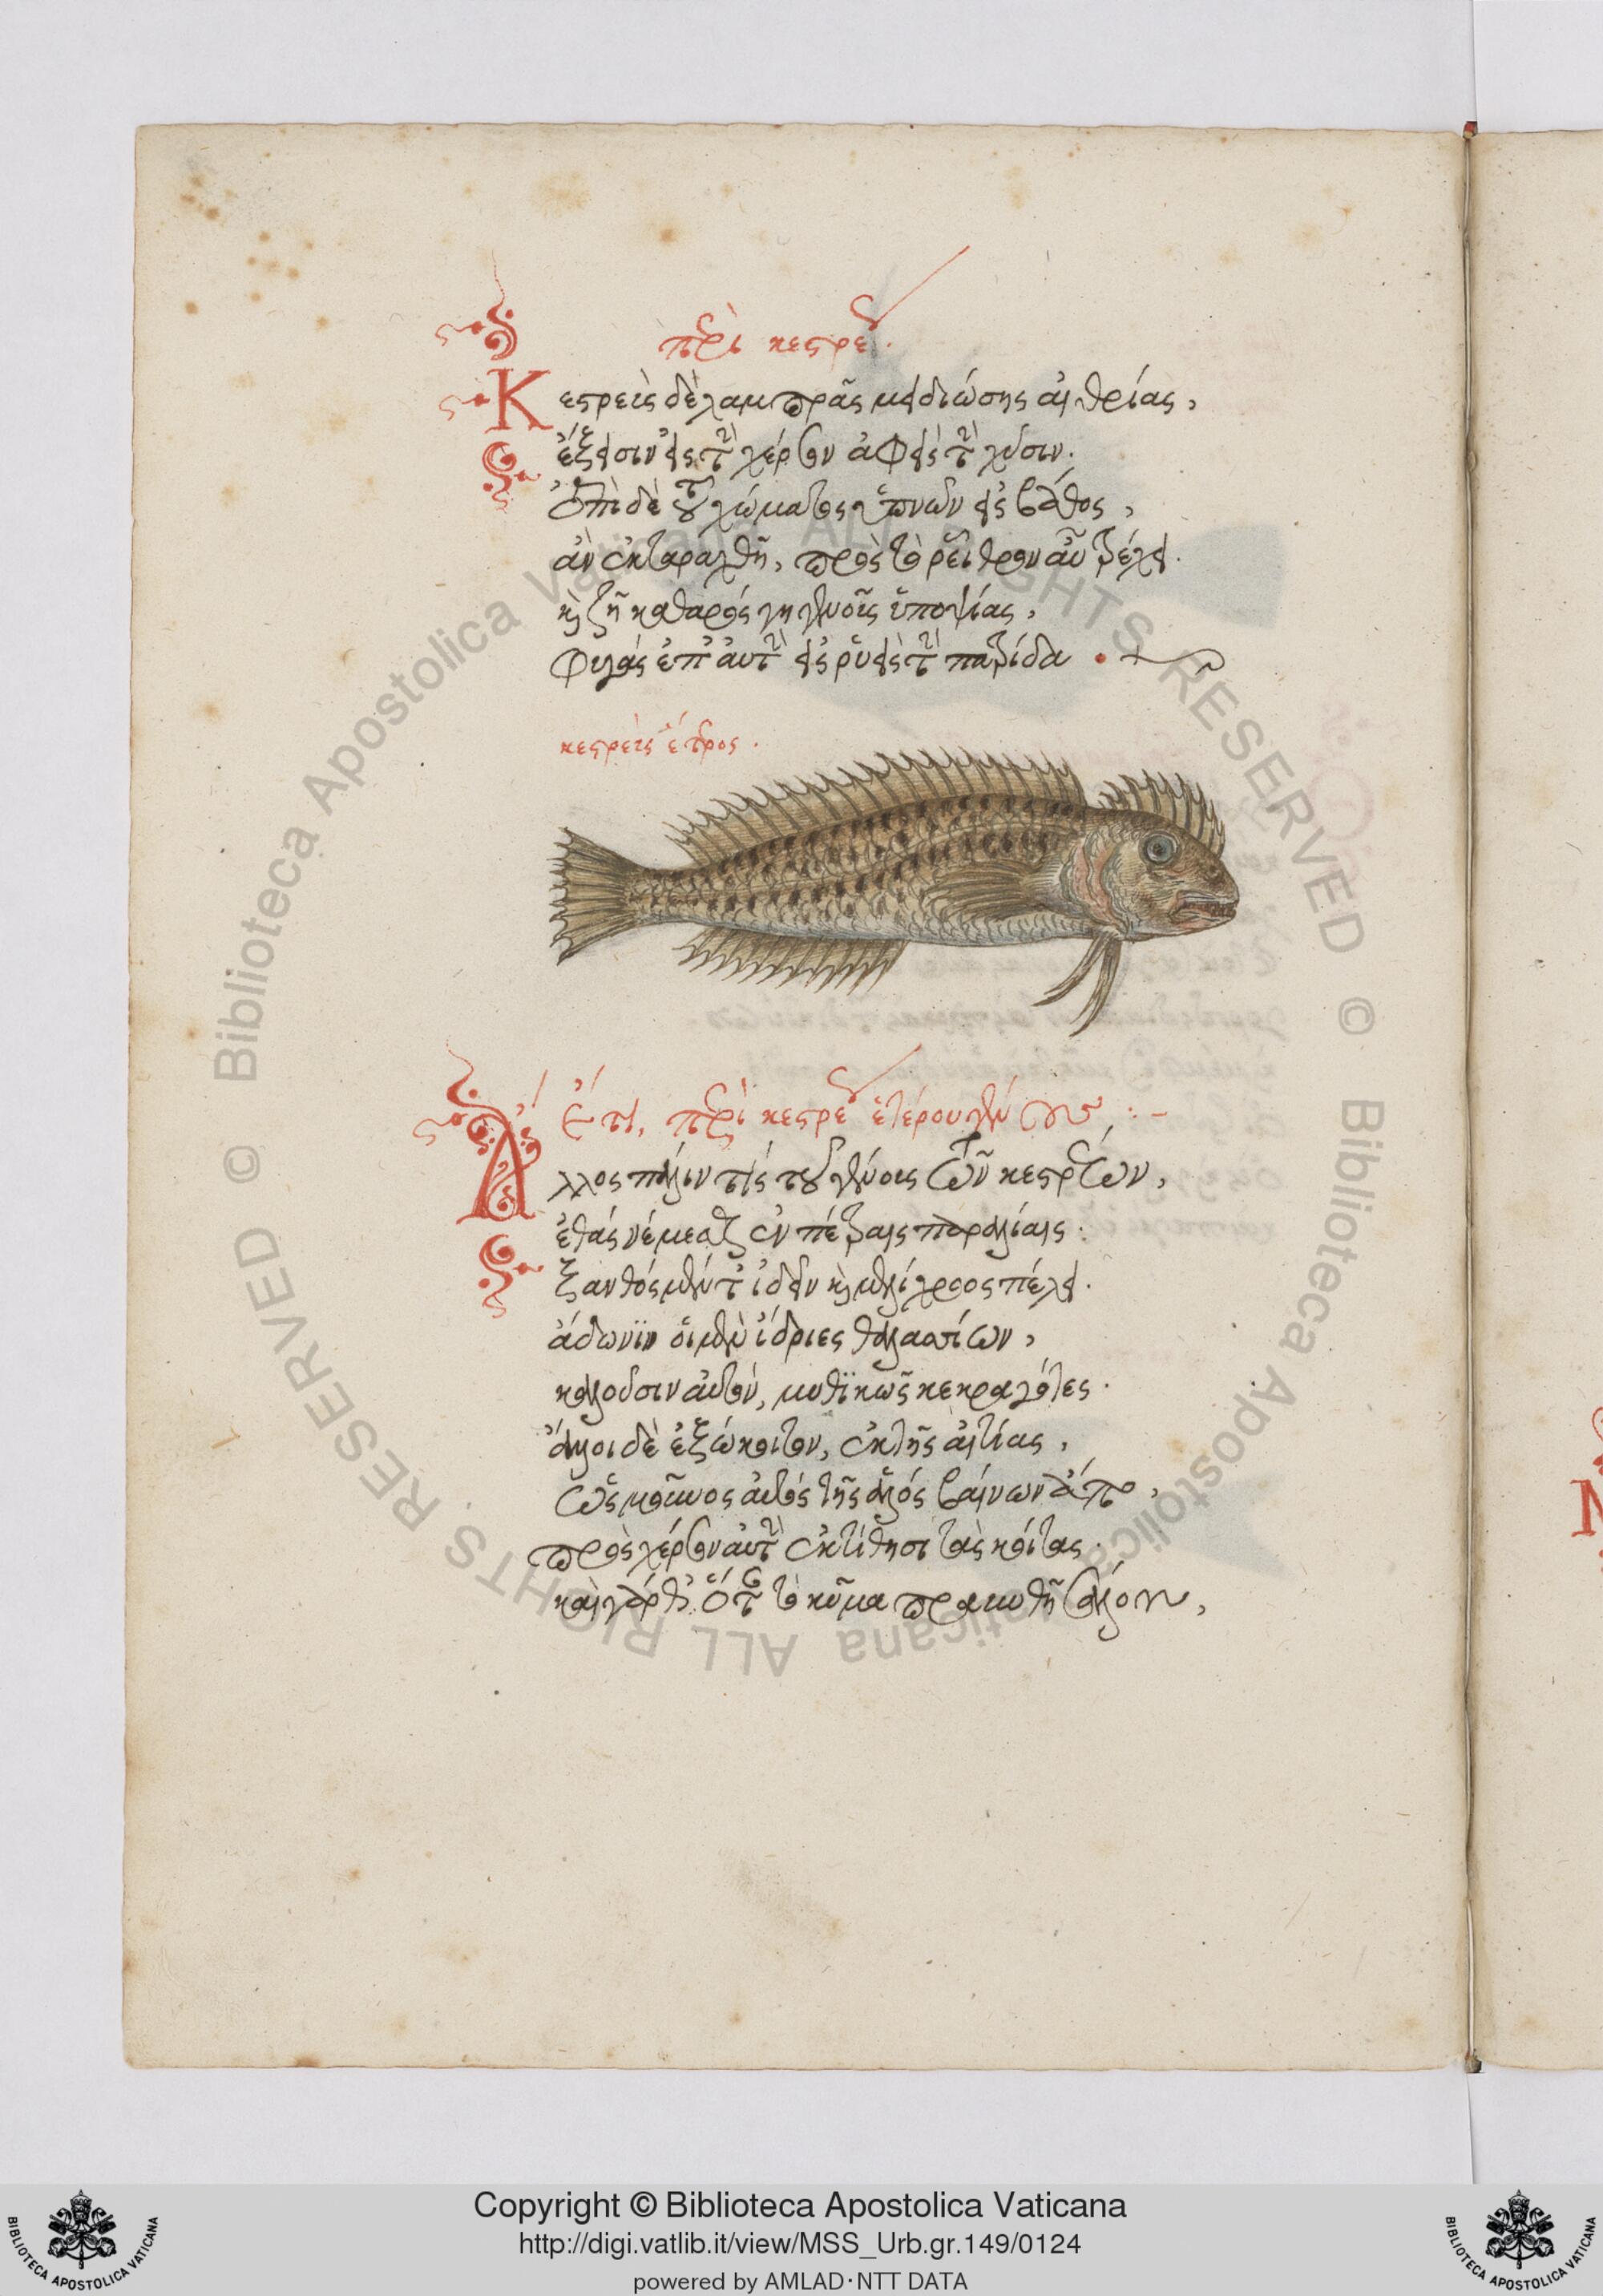 περὶ κεστρέως.
Κεστρεὺς δὲ λαμπρᾶς μειδιώσης αἰθρίας,
ἔξεισιν εἰς τὴν χέρσον ἀφεὶς τὴν χύσιν.
ἐπὶ δὲ τοῦ χώματος ὑπνῶν εἰς βάθος,
ἂν ἐκταραχθῇ, πρὸς τὸ ῥεῖθρον αὖ τρέχει.
καὶ ζῇ καθαρὸς γηγενοῦς ὑποψίας,
φυγὰς ἐπ' αὐτὴν εἰσρυεὶς τὴν πατρίδα.
κεστρεὺς ἕτερος.
Ἔτι, περὶ κεστρέως ἑτέρου γένους :-
Ἄλλος πάλιν τις τοῦ γένους τῶν κεστρέων,
ἐθὰς νέμεσθαι ἐν πέτραις παραλίαις.
ξανθὸς μὲν ἰδεῖν καὶ μελίχρους πέλει.
ἄδωνιν οἱ μὲν ἴδριες θαλαττίων,
καλοῦσιν αὐτόν, μυθικῶς κεκραγότες.
ἄλλοι δὲ ἐξώκοιτον, ἐκ τῆς αἰτίας,
αὐτὸς τῆς ἁλὸς βαίνων ἄπο,
πρὸς χέρσον αὐτὴν ἐκτίθησι τὰς κοίτας.
καὶ γάρ θ' ὅταν τὸ κῦμα πραϋνθῇ
Copyright © Biblioteca Apostolica Vaticana
http://digi.vatlib.it/view/MSS_Urb.gr.149/0124
powered by AMLAD·NTT DATA
BIBLIOTECA APOSTOLICA VATICANA
BIBLIOTECA APOSTOLICA VATICANA
© Biblioteca Apostolica Vaticana ALL RIGHTS RESERVED
© Biblioteca Apostolica Vaticana ALL RIGHTS RESERVED